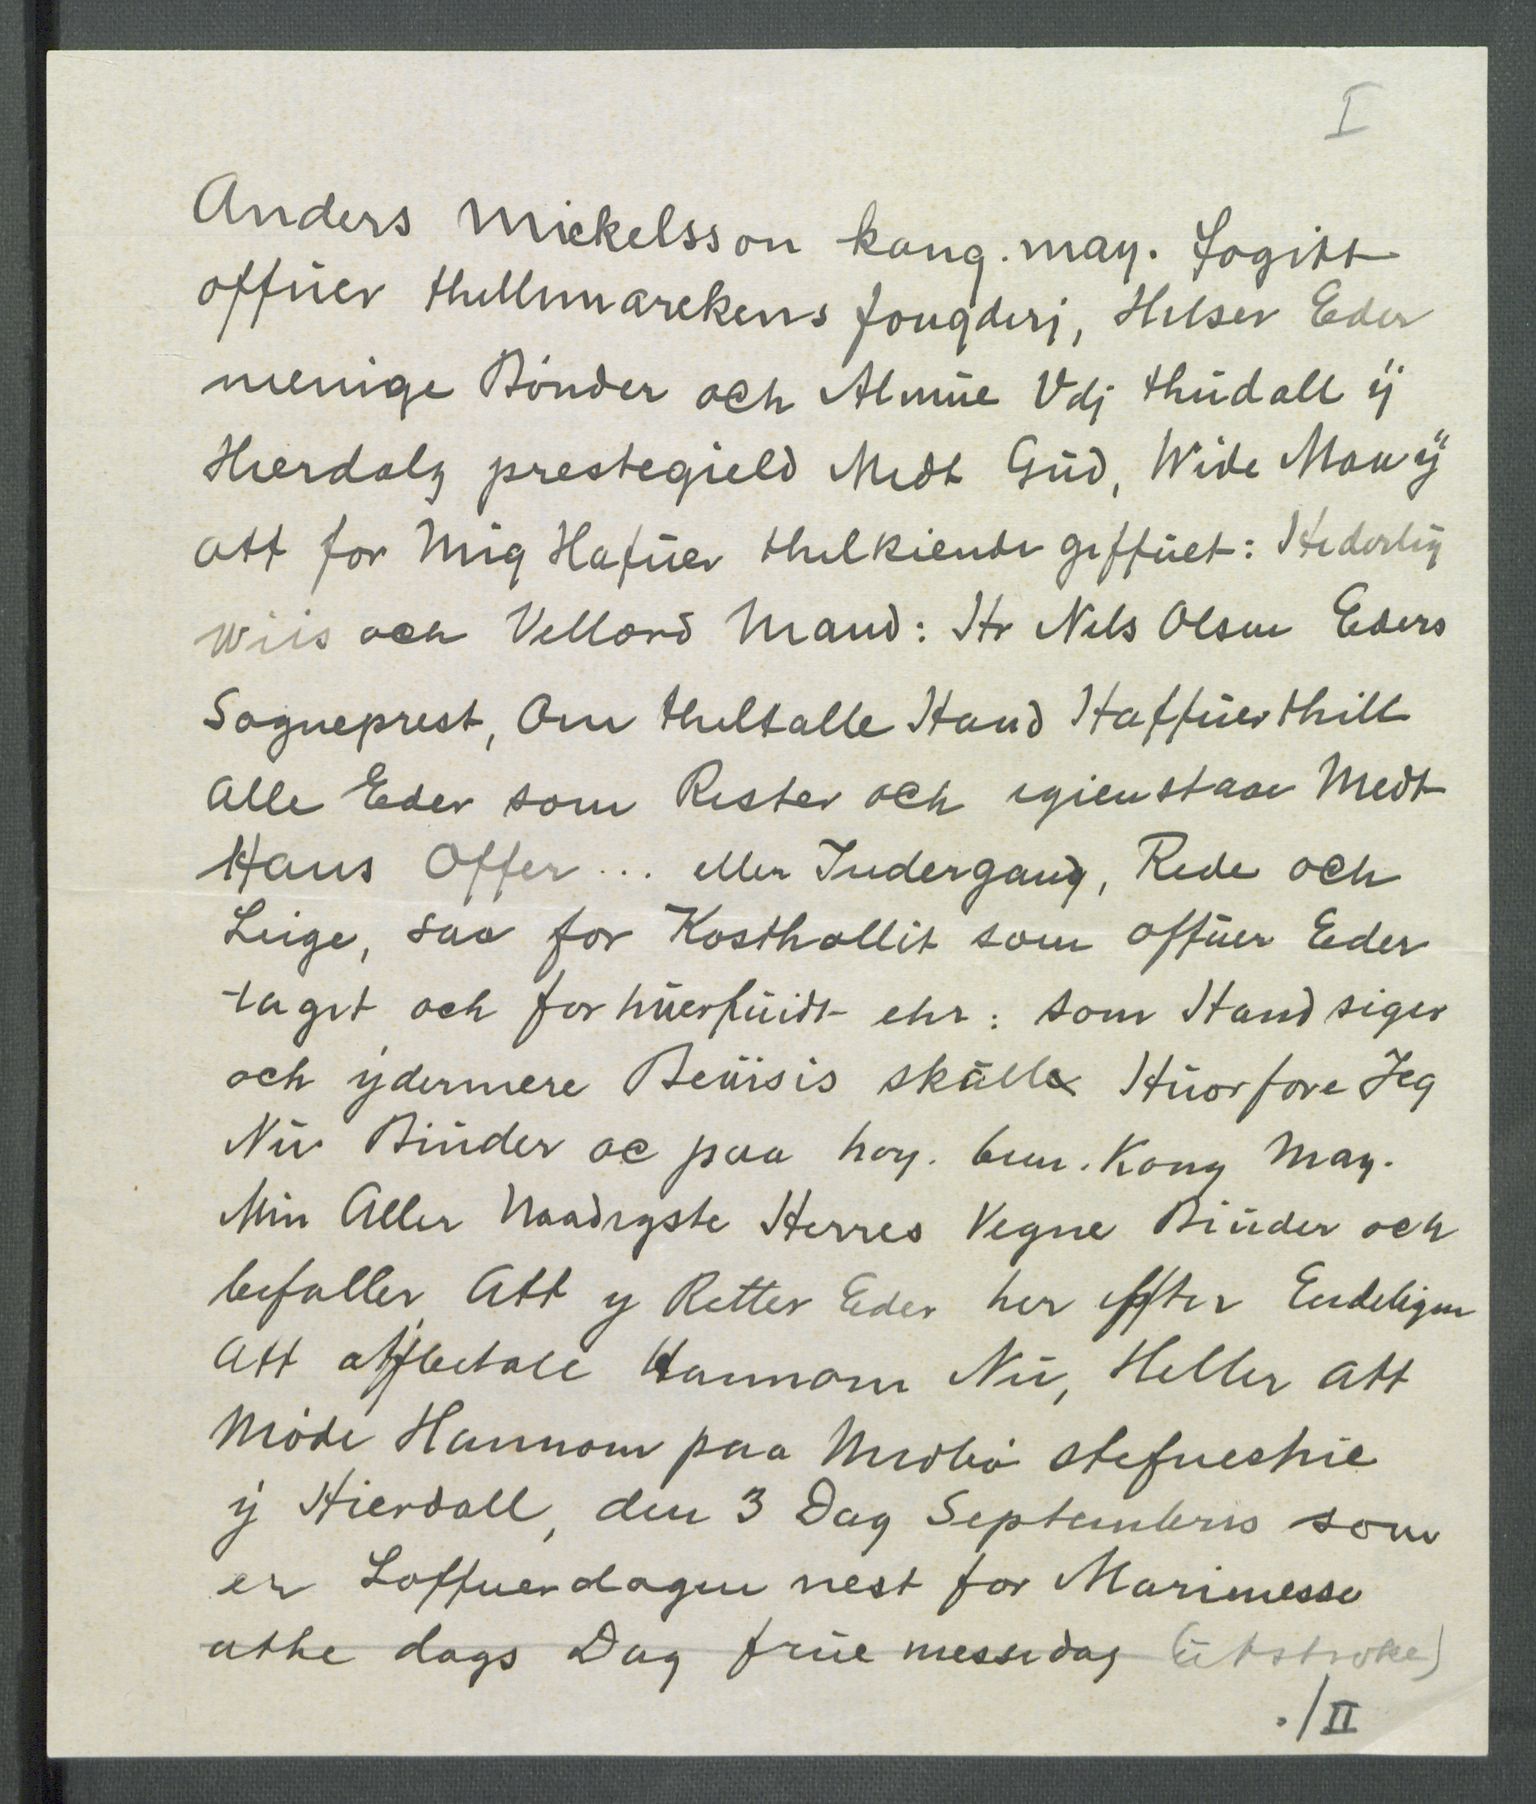 I
Anders Mickelsson kong. may. fogitt
offuer thellmarckens fougderj, Helser Eder
menige Bónder och Almue Vdj thudall ÿ
Hierdalz prestegield Medt Gud, Wide Maa ÿ
att for Mig Hafuer thelkiende giffuet: Hederlig
wiis och Vellard Mand: Hr Nels Olsen Eders
Sogneprest, Om theltalle Hand Haffuer thill
alle Eder som Rester och igienstaar Medt
Hans Offer ... eller Indergang, Rede och
Leige, saa for Kosthollit som offuer Eder
tagit och forhuerfuidt ehr: som Hand siger
och ÿdermere Beuisis skulle Huorfore Jeg
Nu Biuder oc paa hoy. ben. Kong May.
Min Aller Naadigste Herres Vegne Biuder och
befaller Att y Retter Eder her effter Endeligen
att affbetale Hannom Nu, Heller att
Móde Hannom paa Medbó stefnestue
ÿ Hierdall, den 3 Dag Septembris som
er Loffuerdagen nest for Marimesse
athe dags Dag frue messedag (utstroke)
./II